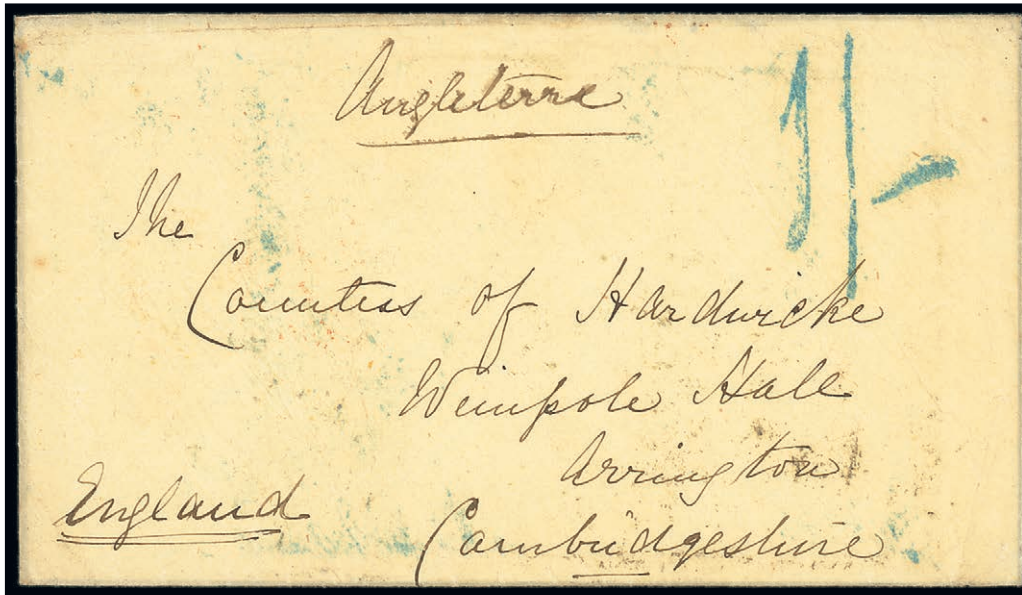 Angleterre
1/-
The
Countess of Hardwicke
Weimpole Hall
Arrington
England
Cambridgeshire